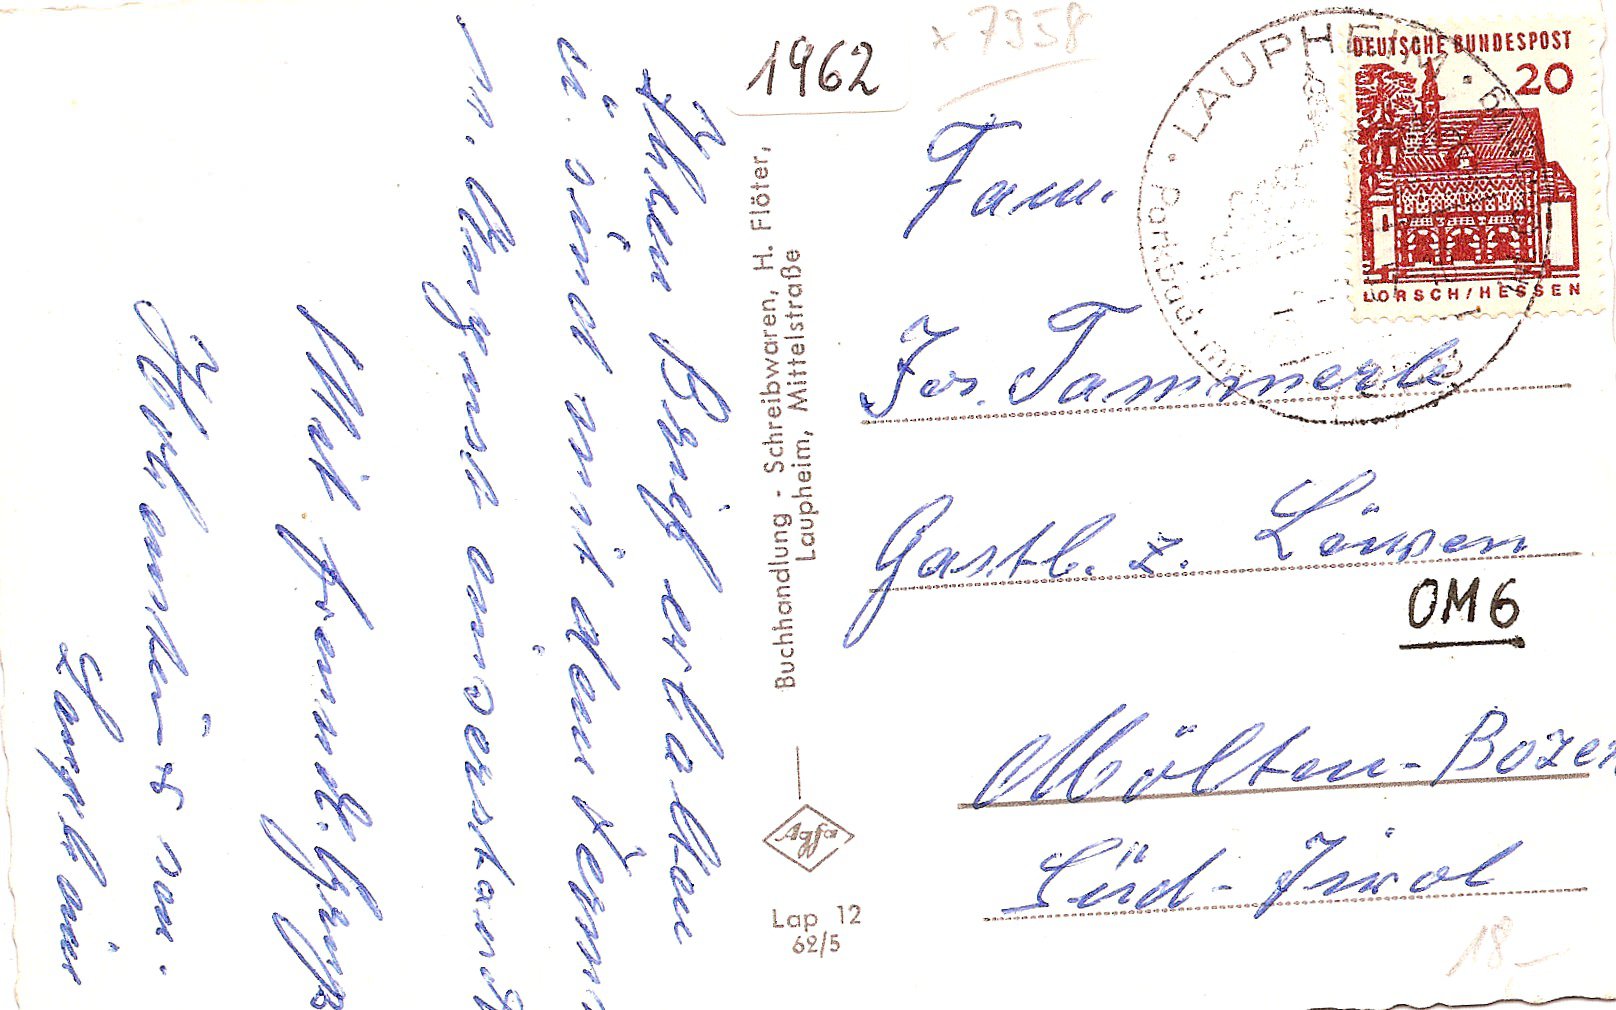 Ihren Brief erhalten
u. sind mit dem Termin
im August einverstanden
Mit freundl. Gruß
von
Laupheim
Buchhandlung - Schreibwaren, H. Flöter,
Laupheim, Mittelstraße
Agfa
Lap 12
62/5
1962
x 7958
LAUPHEIM
Parkbad
DEUTSCHE BUNDESPOST
20
LORSCH/HESSEN
Fam.
Jos. Tammerle
Gastb. z. Löwen
OM6
Mölten-Bozen
Süd-Tirol
18-